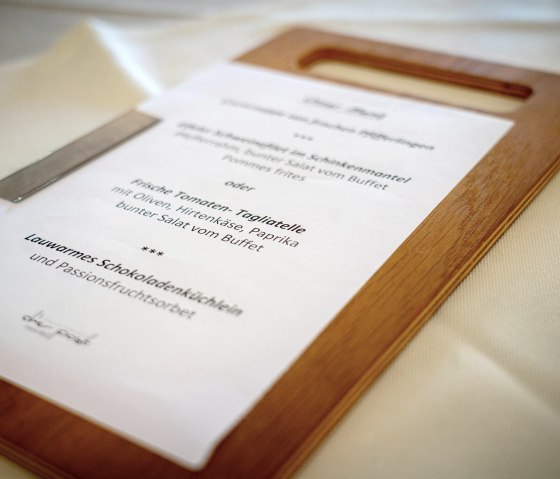 von frischen Pfifferlingen
***
Schweinefilet im Schinkenmantel
Pfefferrahm, bunter Salat vom Buffet
Pommes frites
oder
Frische Tomaten- Tagliatelle
mit Oliven, Hirtenkäse, Paprika
bunter Salat vom Buffet
***
Lauwarmes Schokoladenküchlein
und Passionsfruchtsorbet